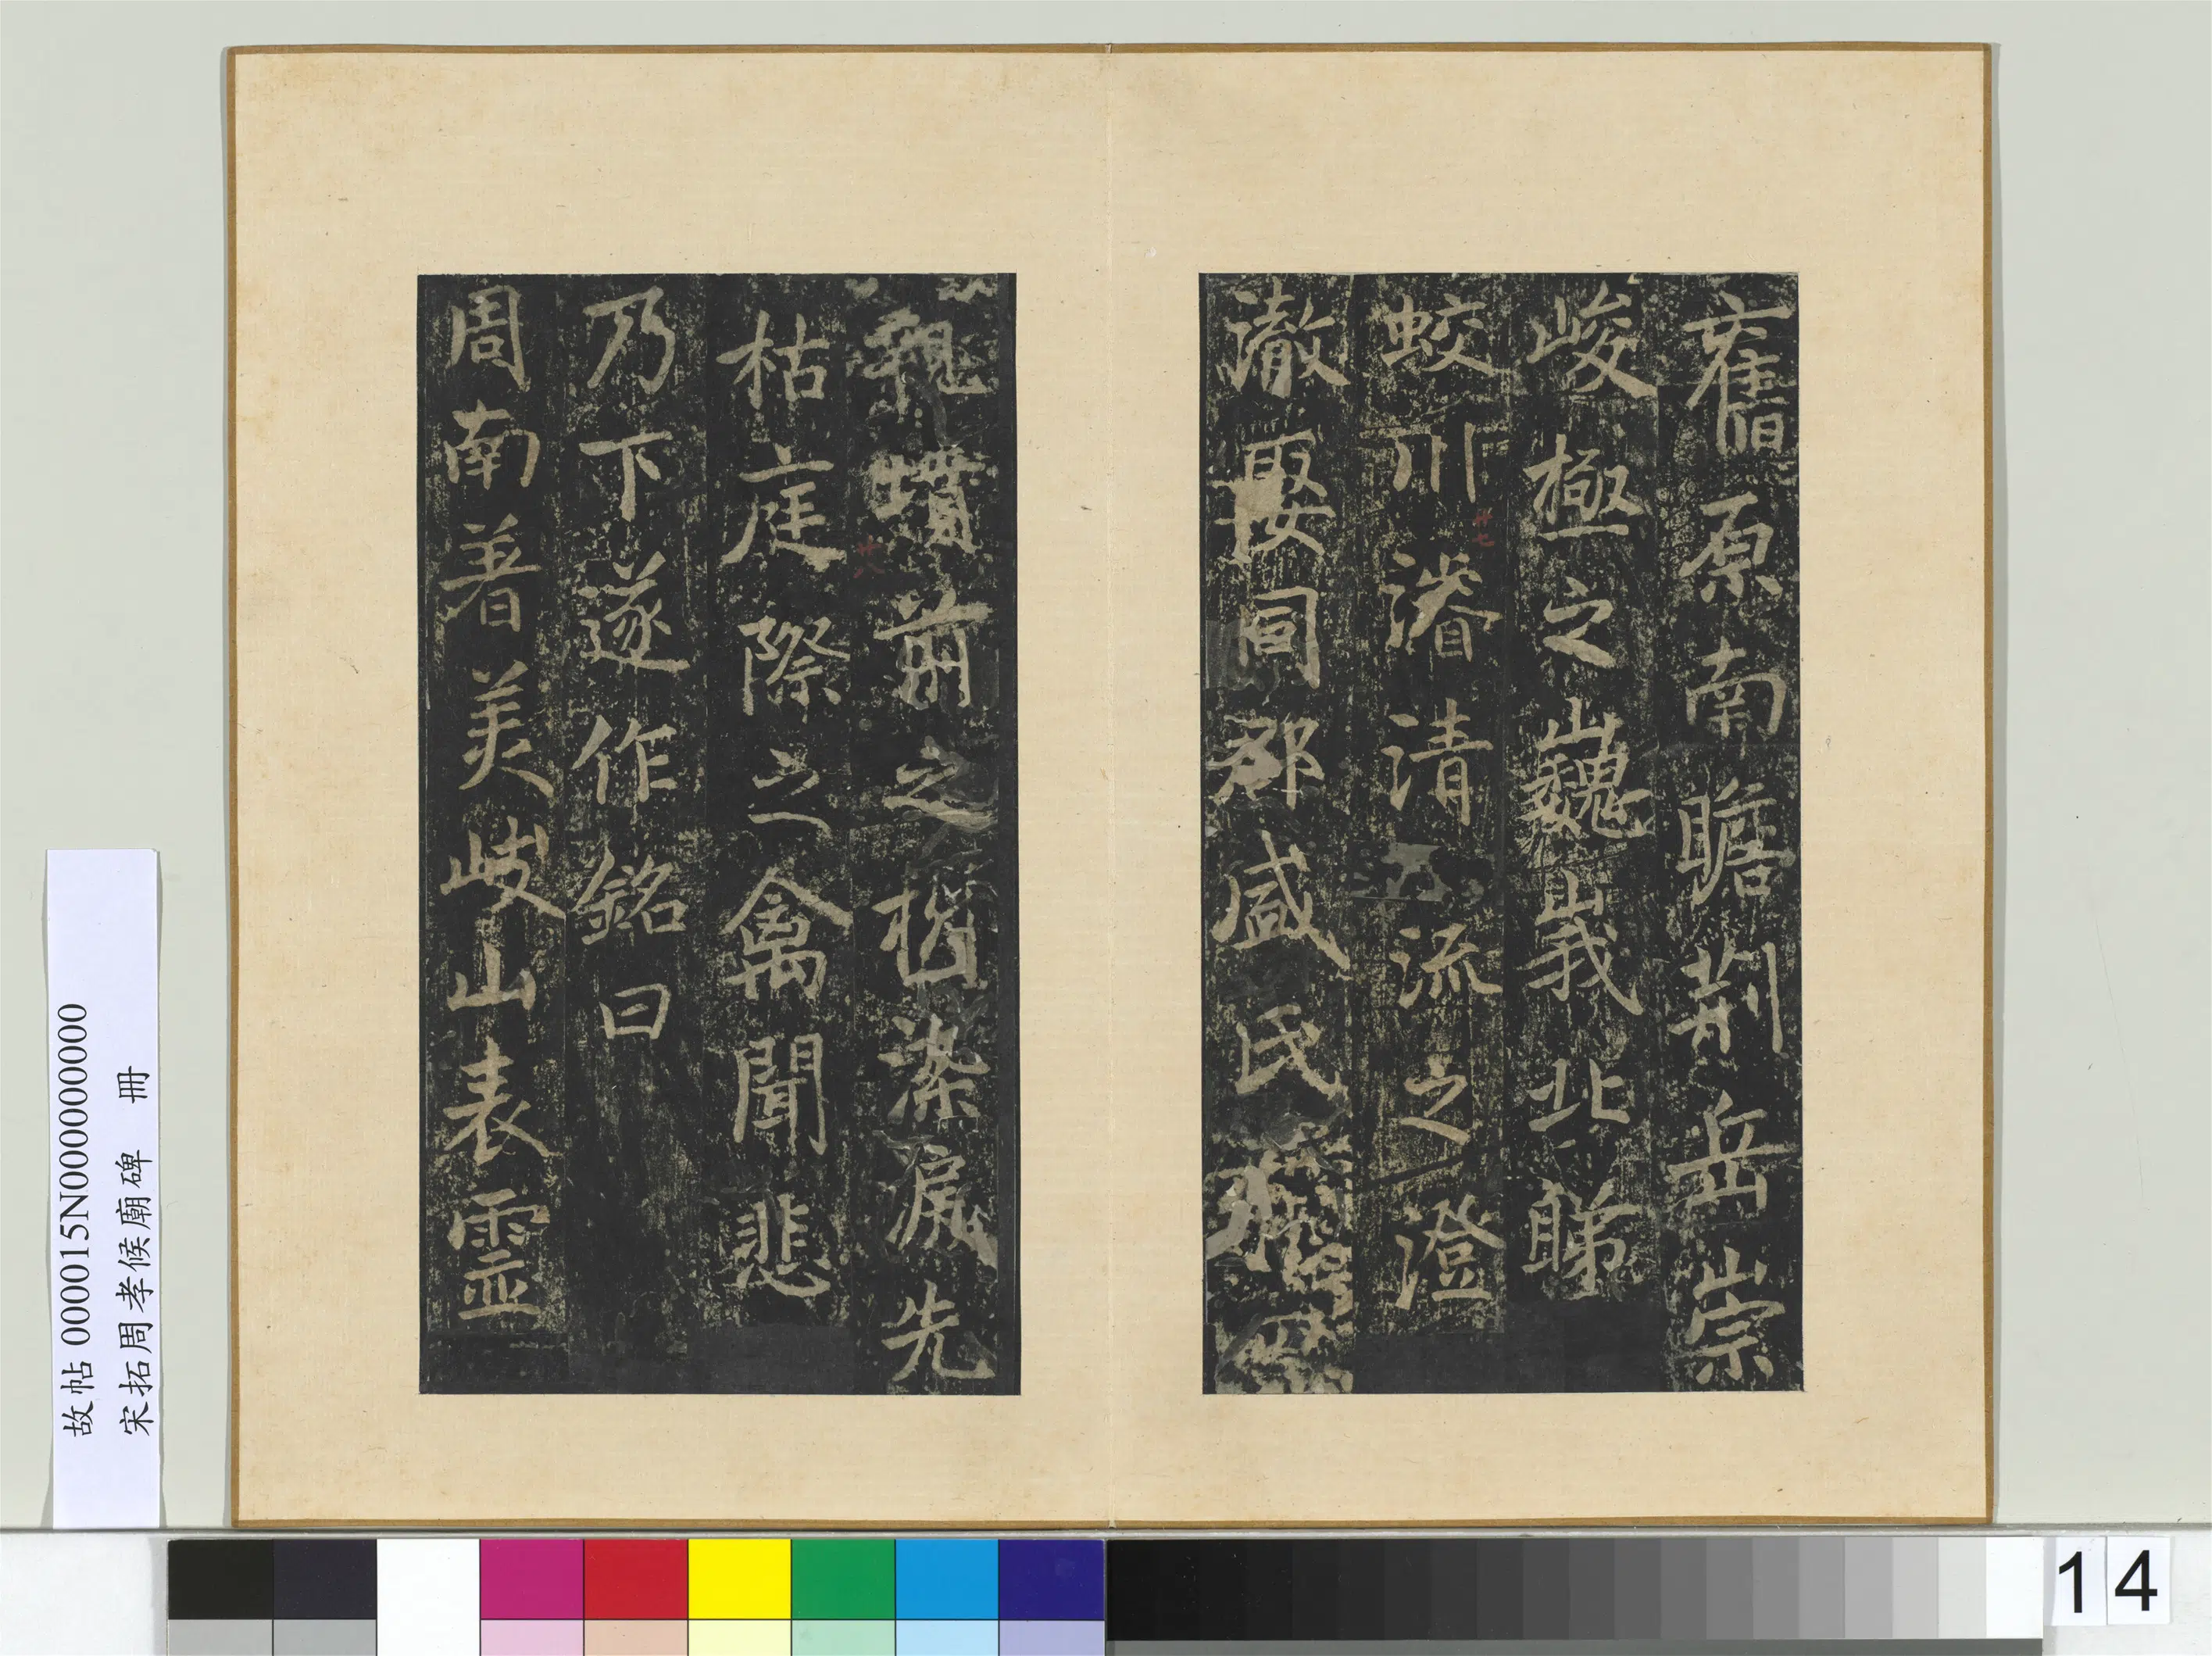 舊原南瞻荊岳崇
峻極之巍峩北睇
蛟川濬清流之澄
澈娶同郡盛氏
親墳前之樹染淚先
枯庭際之禽聞悲
乃下遂作銘曰
周南著美岐山表靈
廿七
廿八
故帖 000015N000000000
宋拓周孝侯廟碑 冊
14